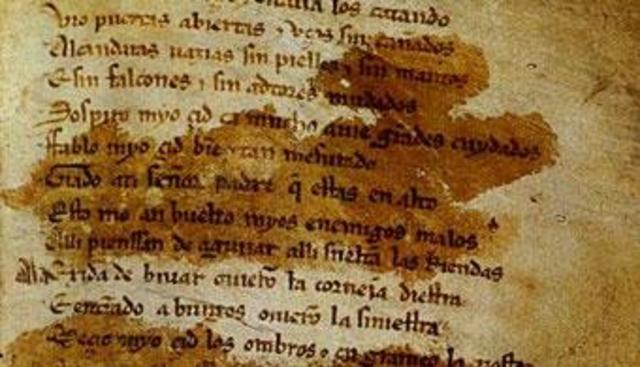 los catando
Vio puertas abiertas e vços sin cañados
Alcandaras uazias sin pielles e sin mantos
E sin falcones e sin adtores mudados
Sospiro myo çid ca mucho auie grãdes cuydados
Fablo myo çid bie e tan mesurado
Grado ati señor padre q̃ estas en alto
Esto me an buelto myos enemigos malos
Alli pienssan de aguiiar alli sueltã las Riendas
Ala exida de biuar ouierõ la corneja diestra
E entrãdo a burgos ouierõ la siniestra
Meçio myo çid los ombros e en grameo la